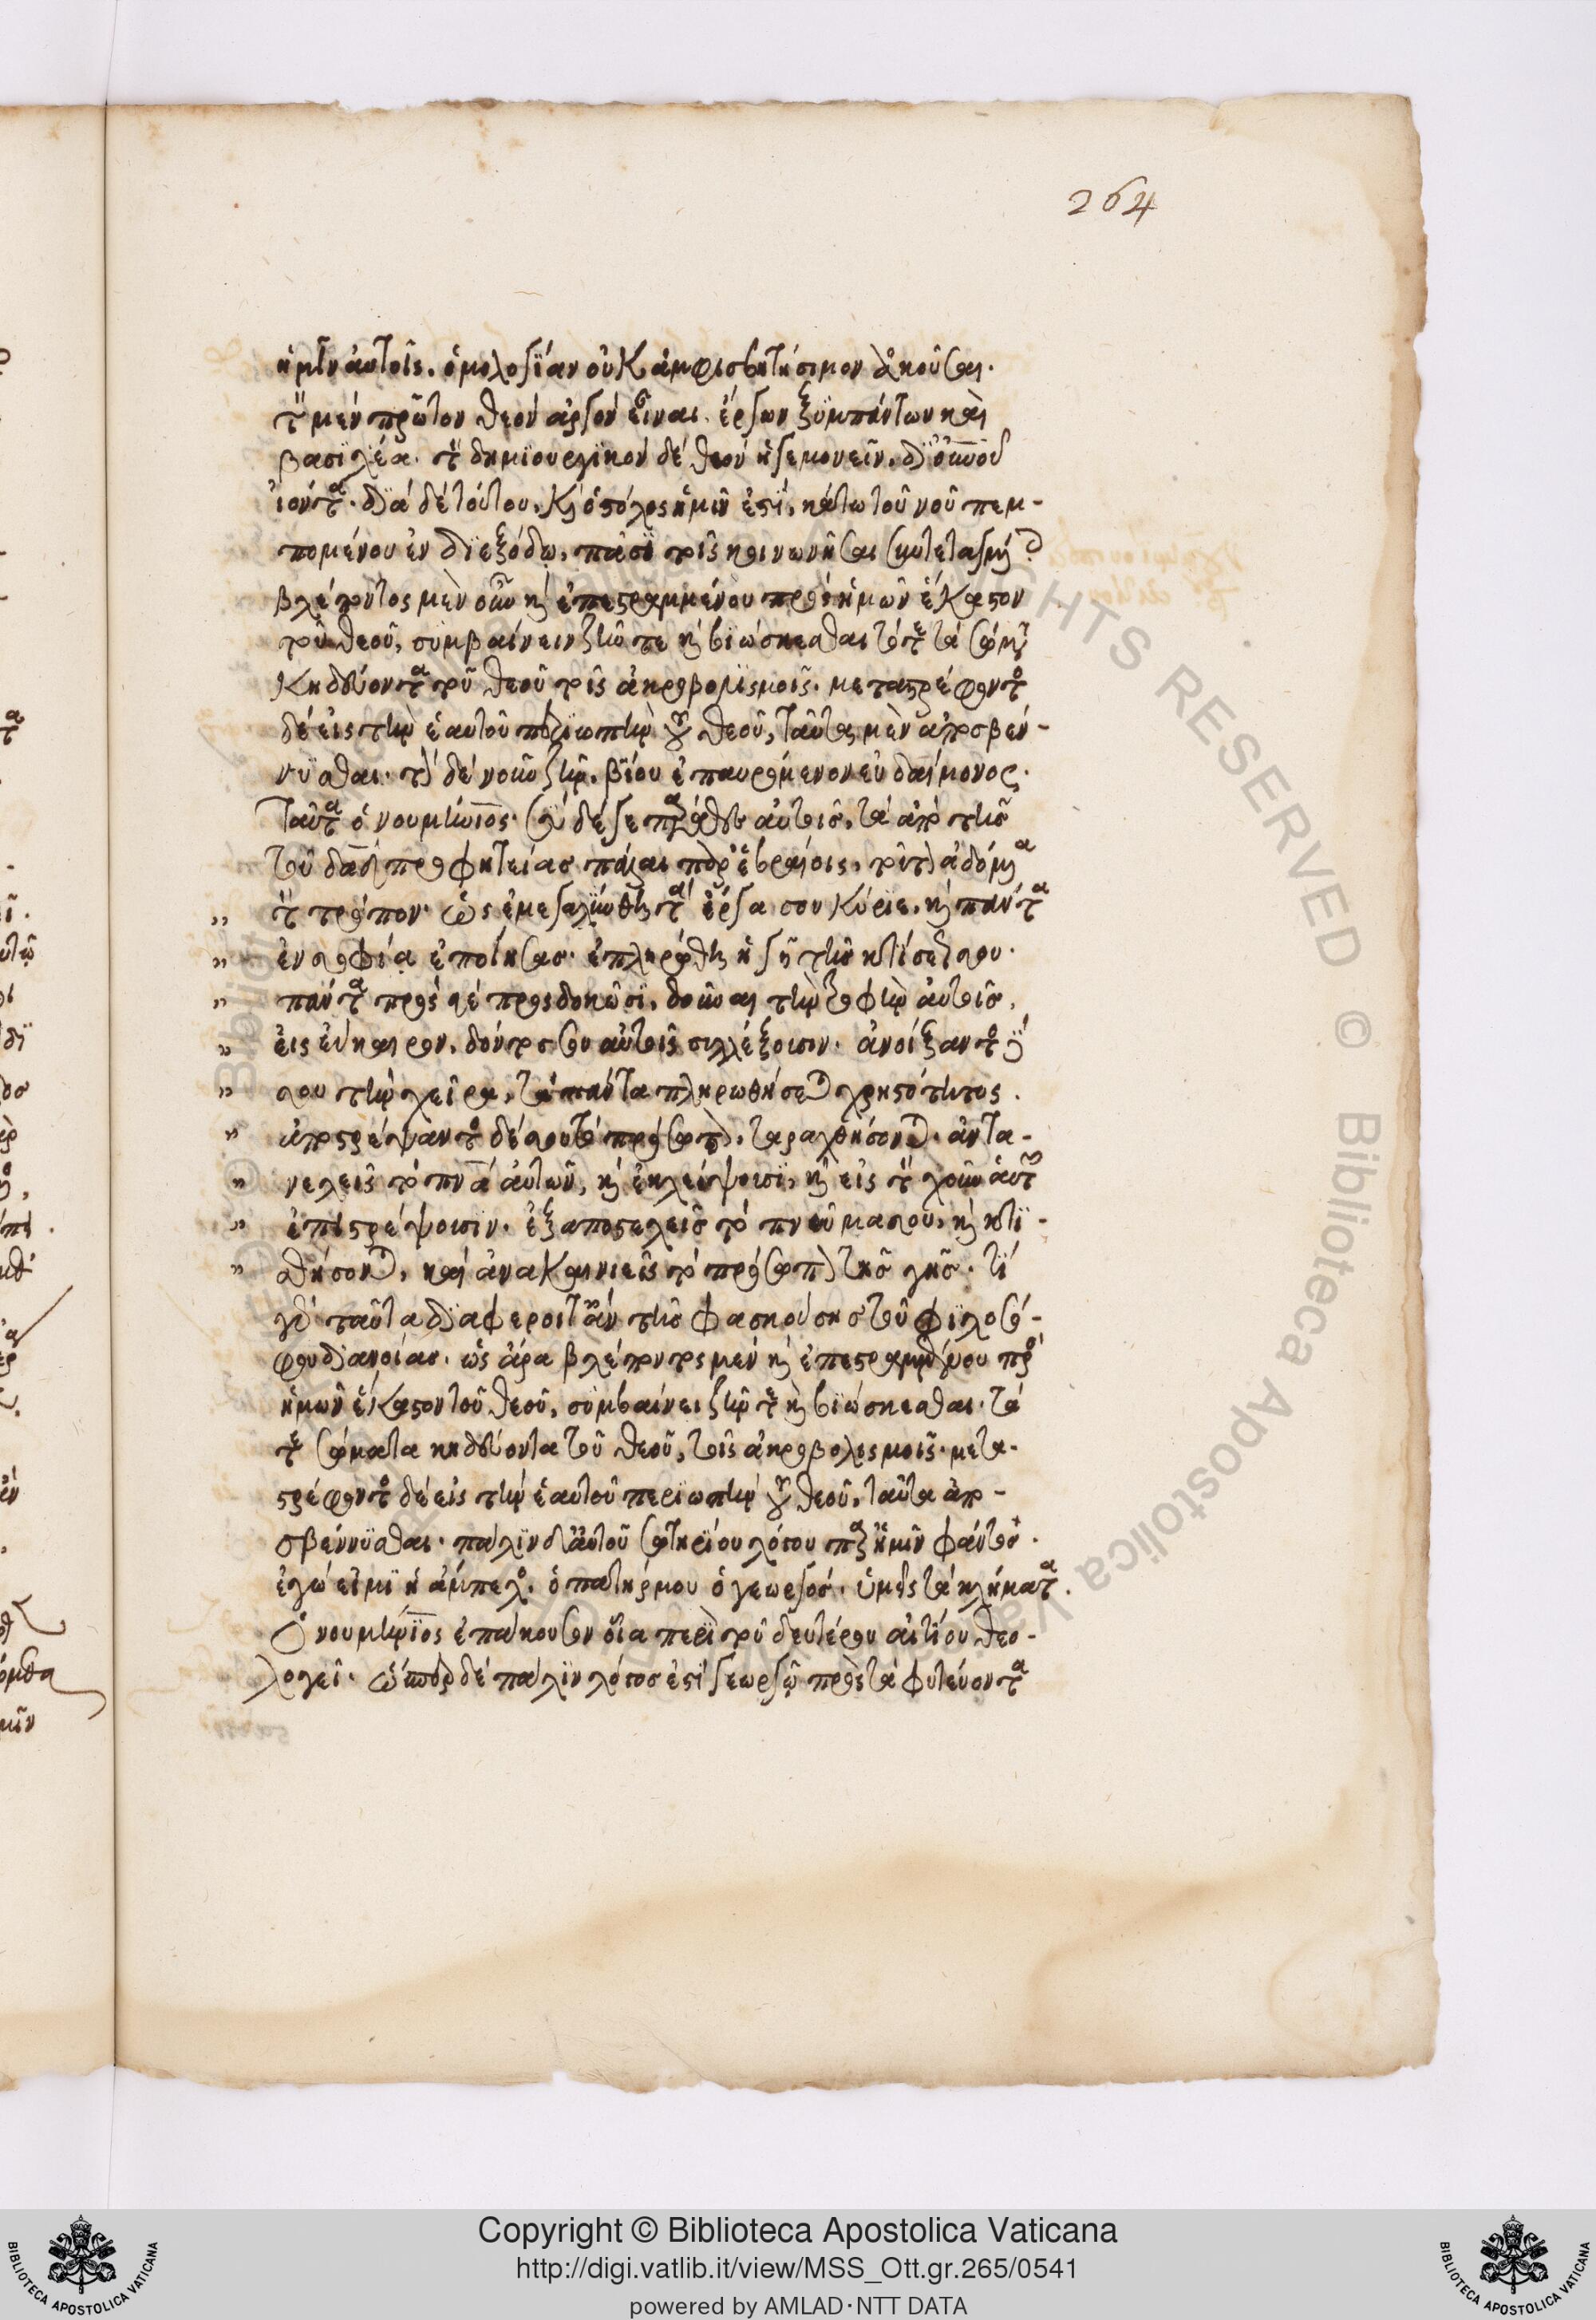 264
ἡμῖν αὐτοῖς, ὁμολογίαν οὐκ ἀμφισβητήσιμον ἀκοῦσαι.
τὸν μὲν πρῶτον θεὸν ἀργὸν εἶναι ἔργων ξυμπάντων καὶ
βασιλέα. τὸν δημιουργικὸν δὲ θεὸν ἡγεμονεῖν, δι' οὐνοῦ
ἰόντα. διὰ δὲ τούτου, καὶ ὁ στόλος ἡμῖν ἐστὶ, κάτω τοῦ νοῦ πεμ-
πομένου ἐν διεξόδῳ, πᾶσι τοῖς κοινωνῆσαι συντεταγμένοις
βλέποντος μὲν οὖν καὶ ἐπεστραμμένου πρὸς ἡμῶν ἕκαστον
τοῦ θεοῦ, συμβαίνειν ζῆν τε καὶ βιώσκεσθαι τότε τὰ σώματα
κηδεύοντα τοῦ θεοῦ τοῖς ἀκροβολισμοῖς. μεταστρέφοντος
δὲ εἰς τὴν ἑαυτοῦ περιωπὴν τοῦ θεοῦ, ταῦτα μὲν ἀποσβέν-
νυσθαι. τὸν δὲ νοῦν ζῆν, βίου ἐπαυρόμενον εὐδαίμονος.
Ταῦτα ὁ νουμήνιος. σὺ δέ γε παράθες αὐτοῖς, τὰ ἀπὸ τῆς
τοῦ δαδ προφητείας πάλαι παρ' ἑβραίοις, τοῦτον ἀδόμενα
τὸν τρόπον. ὡς ἐμεγαλύνθη τὰ ἔργα σου κύριε, καὶ πάντα
ἐν σοφίᾳ ἐποίησας. ἐπληρώθη ἡ γῆ τῆς κτίσεώς σου.
πάντα πρὸς σὲ προσδοκῶσι, δοῦναι τὴν τροφὴν αὐτοῖς,
εἰς εὔκαιρον, δόντος σου αὐτοῖς συλλέξουσιν. ἀνοίξαντος δέ
σου τὴν χεῖρα, τὰ πάντα πληρωθήσεται χρηστότητος.
ἀποστρέψαντος δέ σου τὸ πρόσωπον, ταραχθήσονται. ἀντα-
νελεῖς τὸ πνα αὐτῶν, καὶ ἐκλείψουσι, καὶ εἰς τὸν χοῦν αὐτῶν
ἐπιστρέψουσιν. ἐξαποστελεῖς τὸ πνεῦμα σου, καὶ κτι-
σθήσονται, καὶ ἀνακαινιεῖς τὸ πρόσωπον τῆς γῆς. τί
γὰρ ταῦτα διαφέροι τ' ἂν τῆς φασκούσης τοῦ φιλοσό-
φου διανοίας. ὡς ἄρα βλέποντος μὲν καὶ ἐπεστραμμένου πρὸς
ἡμῶν ἕκαστον τοῦ θεοῦ, συμβαίνει ζῆν τε καὶ βιώσκεσθαι. τά
τε σώματα κηδεύοντα τοῦ θεοῦ, τοῖς ἀκροβολισμοῖς. μετα-
στρέφοντος δὲ εἰς τὴν ἑαυτοῦ περιωπὴν τοῦ θεοῦ, ταῦτα ἀπο-
σβέννυσθαι. πάλιν δ' αὐτοῦ σωτηρίου λόγου παρ' ἡμῖν φάντος.
ἐγώ εἰμι ἡ ἄμπελος, ὁ πατήρ μου ὁ γεωργός. ὑμεῖς τὰ κλήματα.
Ὁ νουμήνιος ἐπάκουσον οἷα περὶ τοῦ δευτέρου αἰτίου θεο-
λογεῖ. ὥσπερ δὲ πάλιν λόγος ἐστὶ γεωργῷ πρὸς τὰ φυτεύοντα
Copyright © Biblioteca Apostolica Vaticana
http://digi.vatlib.it/view/MSS_Ott.gr.265/0541
powered by AMLAD·NTT DATA
BIBLIOTECA APOSTOLICA VATICANA
BIBLIOTECA APOSTOLICA VATICANA